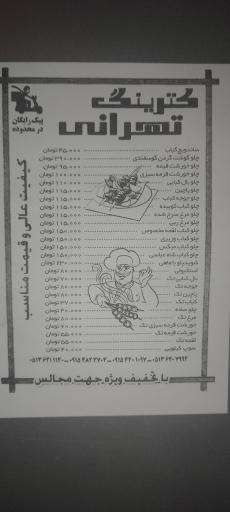 پیک رایگان
در محدوده
کترینگ
تهرانی
کیفیت عالی و قیمت مناسب
ساندویچ کباب ۴۵,۰۰۰ تومان
چلو گوشت گردن گوسفندی ۳۹۰,۰۰۰ تومان
چلو خورشت قیمه ۹۵,۰۰۰ تومان
چلو خورشت قرمه سبزی ۱۰۰,۰۰۰ تومان
چلو بال کبابی ۱۱۰,۰۰۰ تومان
چلو پاچین ۱۱۵,۰۰۰ تومان
چلو جوجه کباب ۱۱۵,۰۰۰ تومان
چلو کباب کوبیده ۱۱۵,۰۰۰ تومان
چلو مرغ سرخ شده ۱۱۵,۰۰۰ تومان
چلو مرغ ربی ۱۱۵,۰۰۰ تومان
چلو کباب لقمه مخصوص ۱۵۰,۰۰۰ تومان
چلو کباب وزیری ۱۵۰,۰۰۰ تومان
چلو کباب میکس ۱۵۰,۰۰۰ تومان
چلو کباب شاه عباسی ۱۵۰,۰۰۰ تومان
تومان
۸۰,۰۰۰ تومان
بال کبابی تک ۷۰,۰۰۰ تومان
جوجه تک ۸۰,۰۰۰ تومان
پاچین تک ۸۰,۰۰۰ تومان
کباب تک تومان
چلو ساده ۴۰,۰۰۰ تومان
مرغ تک ۸۰,۰۰۰ تومان
خورشت قرمه سبزی تک تومان
خورشت قیمه تک ۵۵,۰۰۰ تومان
لقمه تک ۵۵,۰۰۰ تومان
سوپ تومان
با تخفیف ویژه جهت مجالس